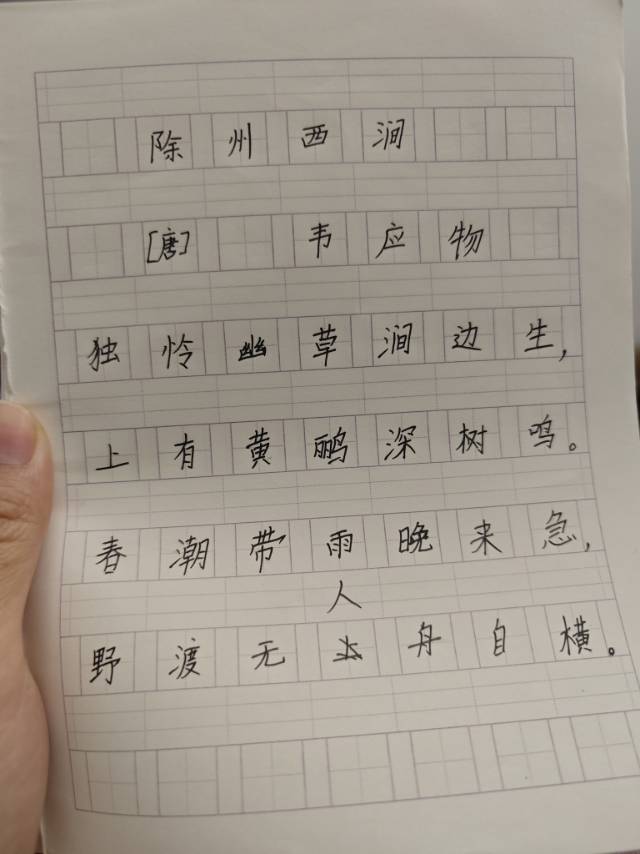 除州西涧
[唐] 韦应物
独怜幽草涧边生,
上有黄鹂深树鸣。
春潮带雨晚来急,
野渡无人舟自横。